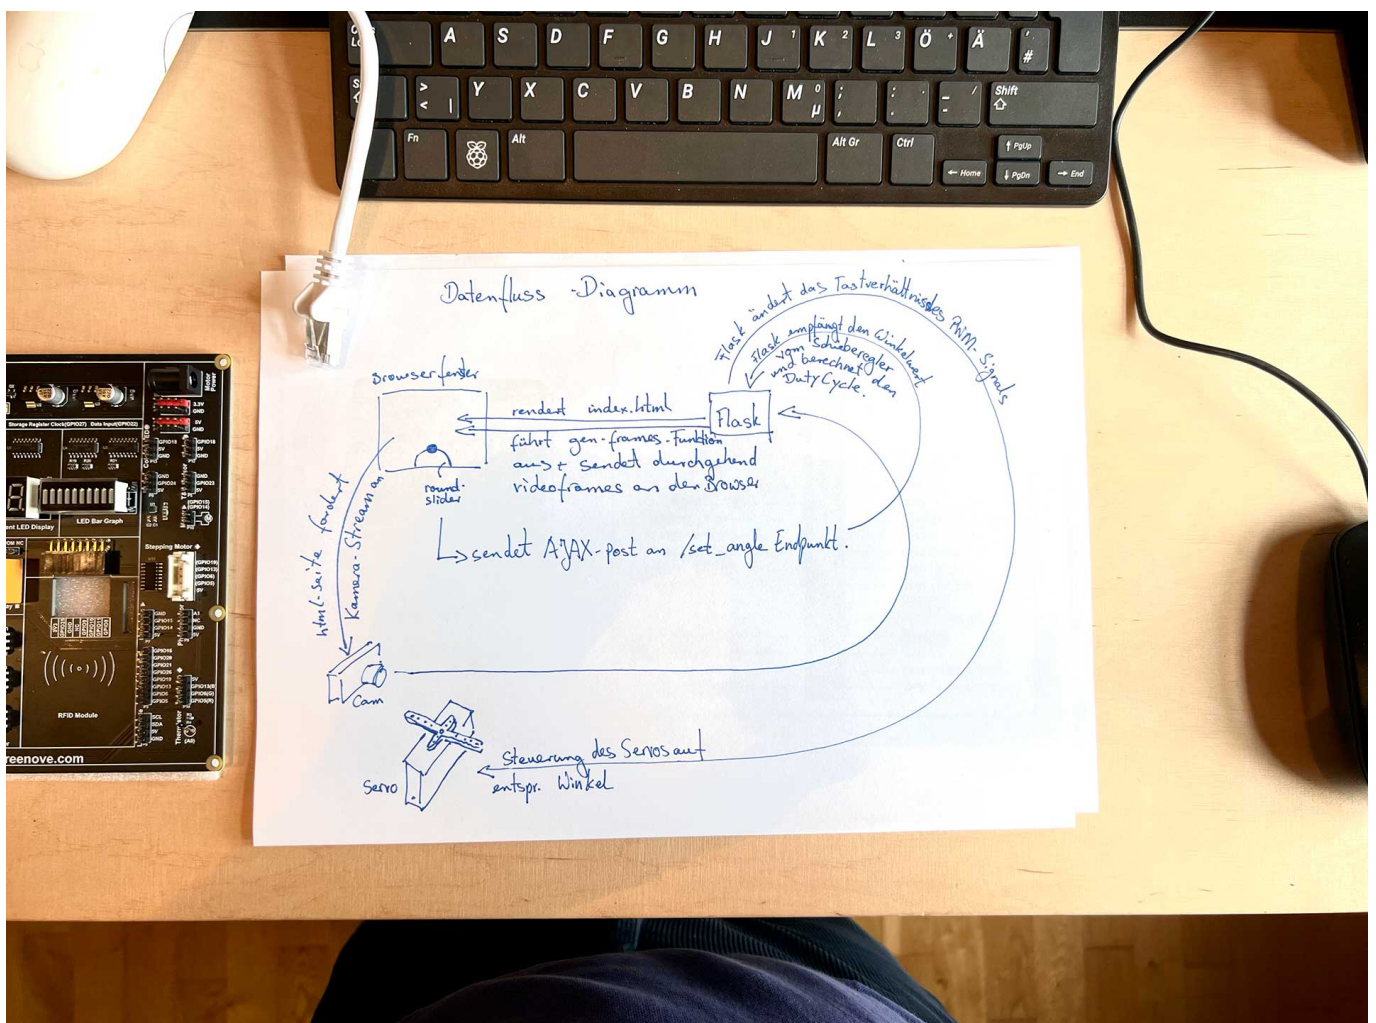 A S D F G H J 1 K 2 L 3 Ö + Ä ' #
> < | Y X C V B N M 0 µ ; , : . _ - / Shift
Fn Alt Alt Gr Ctrl PgUp
Home PgDn End
Datenfluss-Diagramm
Flask ändert das Tastverhältnis des PWM-Signals
Flask empfängt den Winkelwert
vom Schieberegler
und berechnet den
DutyCycle.
Browserfenster
rendert index.html
Flask
führt gen-frames-Funktion
aus + sendet durchgehend
videoframes an den Browser
round-
slider
sendet AJAX-post an /set_angle Endpunkt.
html-seite fordert
Kamera-Stream an
Cam
Servo
Steuerung des Servos auf
entspr. Winkel
Motor
Power
3.3V
GND
5V
GND
Storage Register Clock(GPIO27) Data Input(GPIO22)
GPIO18
LED Bar Graph
LED Display
Stepping Motor
RFID Module
SCL
SDA
5V
GND
Thermistor
(A0)
reenove.com